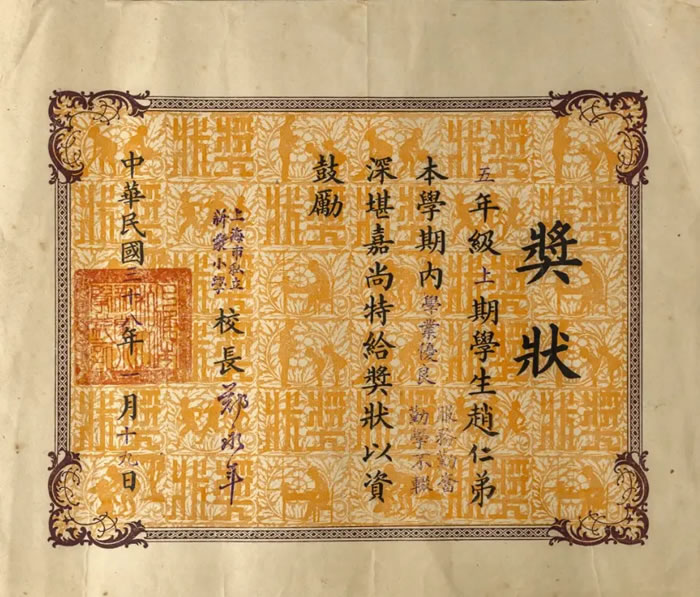 獎狀
五年級上期學生趙仁弟
本學期內學業優良 服務勤奮 勤學不輟
深堪嘉尚特給獎狀以資
鼓勵
上海市私立
小學
校長鄭永年
中華民國三十八年一月十九日